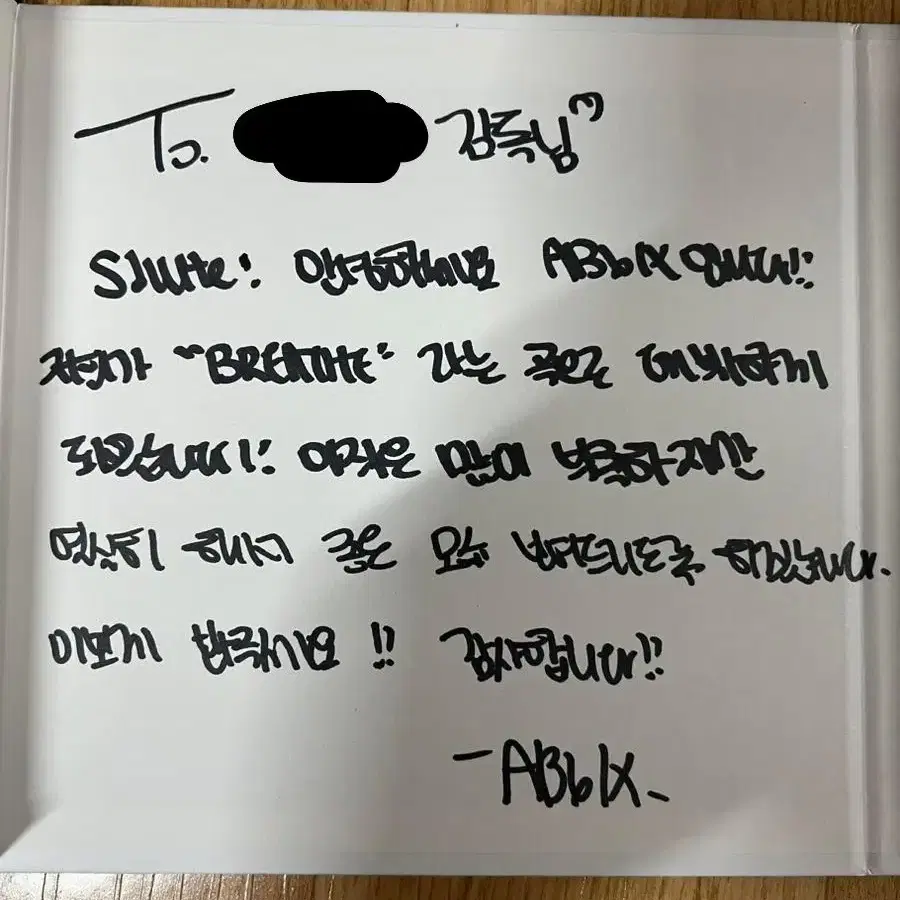 To. 감독님
Salute! 안녕하세요 AB6IX 입니다!!
저희가 "BREATHE" 라는 곡으로 데뷔하게
되었습니다!! 아직은 많이 부족하지만
열심히 해서 좋은 모습 보여드리도록 하겠습니다.
이쁘게 봐주세요!! 감사합니다!!
-AB6IX-